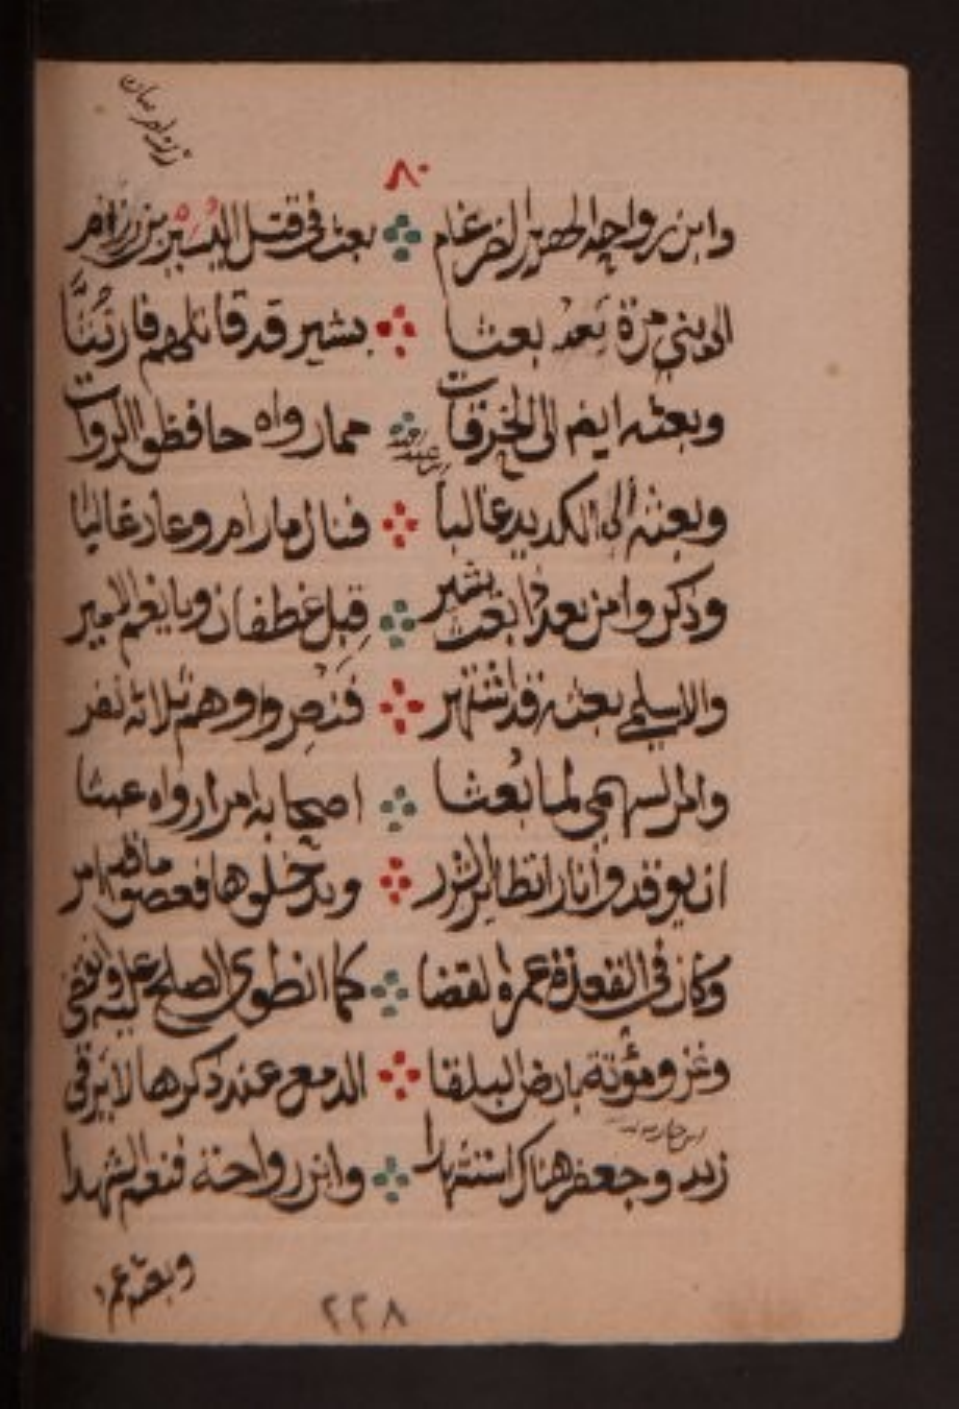 ٨٠
وابن رواحة الضرغام بعث في قتل اليسير بن رزام
الى بني مرة بعد بعثا بشير قد قاتلهم فارتثا
وبعثه ايضا الى الحرقات مما رواه حافظوا الروات
وبعثه الى الكديد غالبا فنال ما رام وعاد غالبا
وذكروا من بعد ذا بعث بشير قبل غطفان ويا نعم المير
والاسلمي بعثه قد اشتهر فنصروا وهم ثلاثة نفر
والسهمي لما بعثا اصحابه امرا رواه عبثا
ان يوقدوا نارا الشرر ويدخلوها فعصوا ما امر
وكان في القعدة عمرة القضا كما انطوى الصلح عليه وانقضى
وغزو مؤتة بارض البلقا الدمع عند ذكرها لا يرقى
زيد وجعفر هناك استشهدا وابن رواحة فنعم الشهدا
وبعثه عمرا
٢٢٨